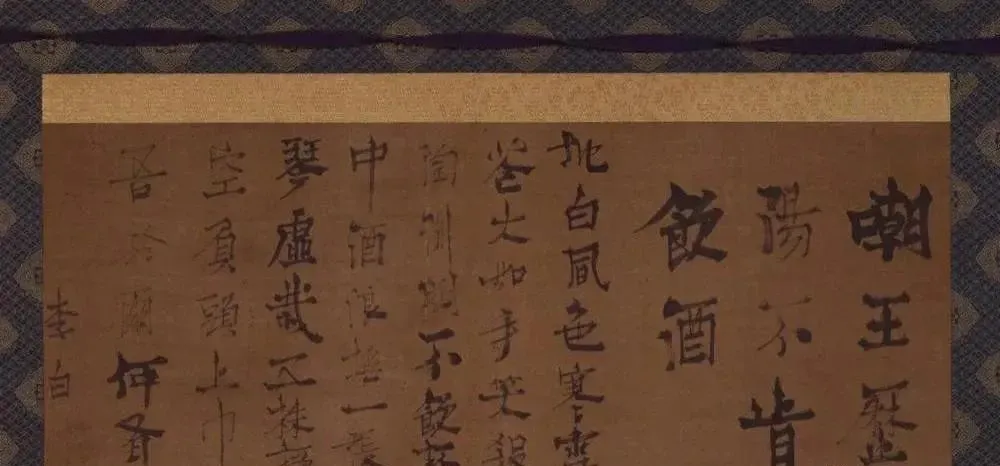 嘲王歷
陽不肯
飲酒
地白風色寒雪
花大如手笑殺
陶淵明不飲
中酒浪撫一張
琴虛栽五株
空負頭上巾
吾於爾何有
李白